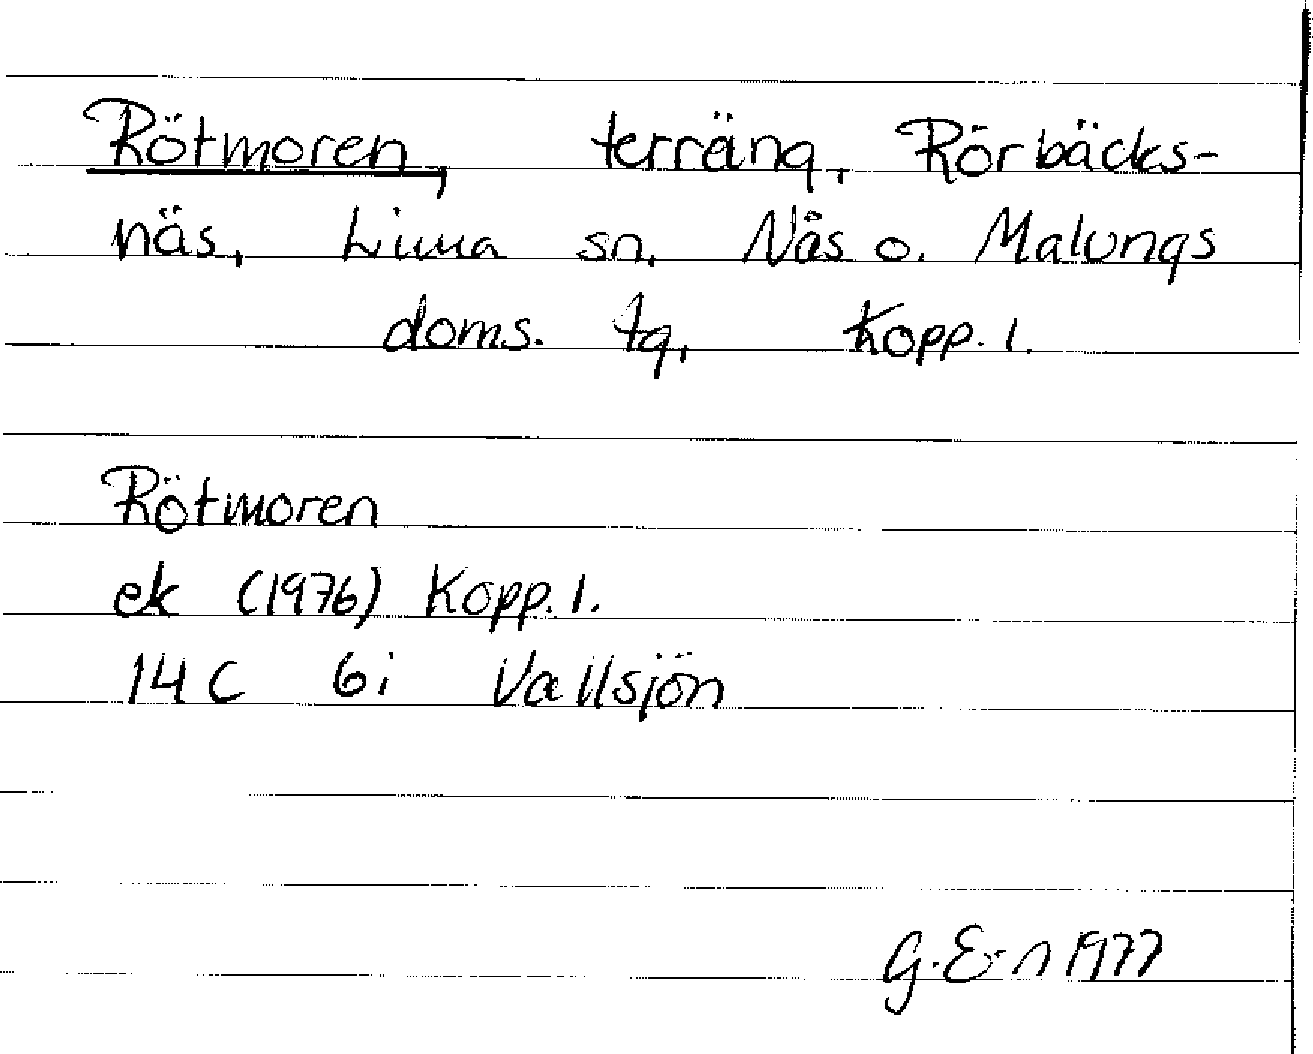 Rötmoren, terräng, Rörbäcks-
näs, Lima sn, Nås o. Malungs
doms. tg, Kopp. l.
Rötmoren
ek (1976) Kopp. l.
14 C 6i Vallsjön
G. E-n 1977